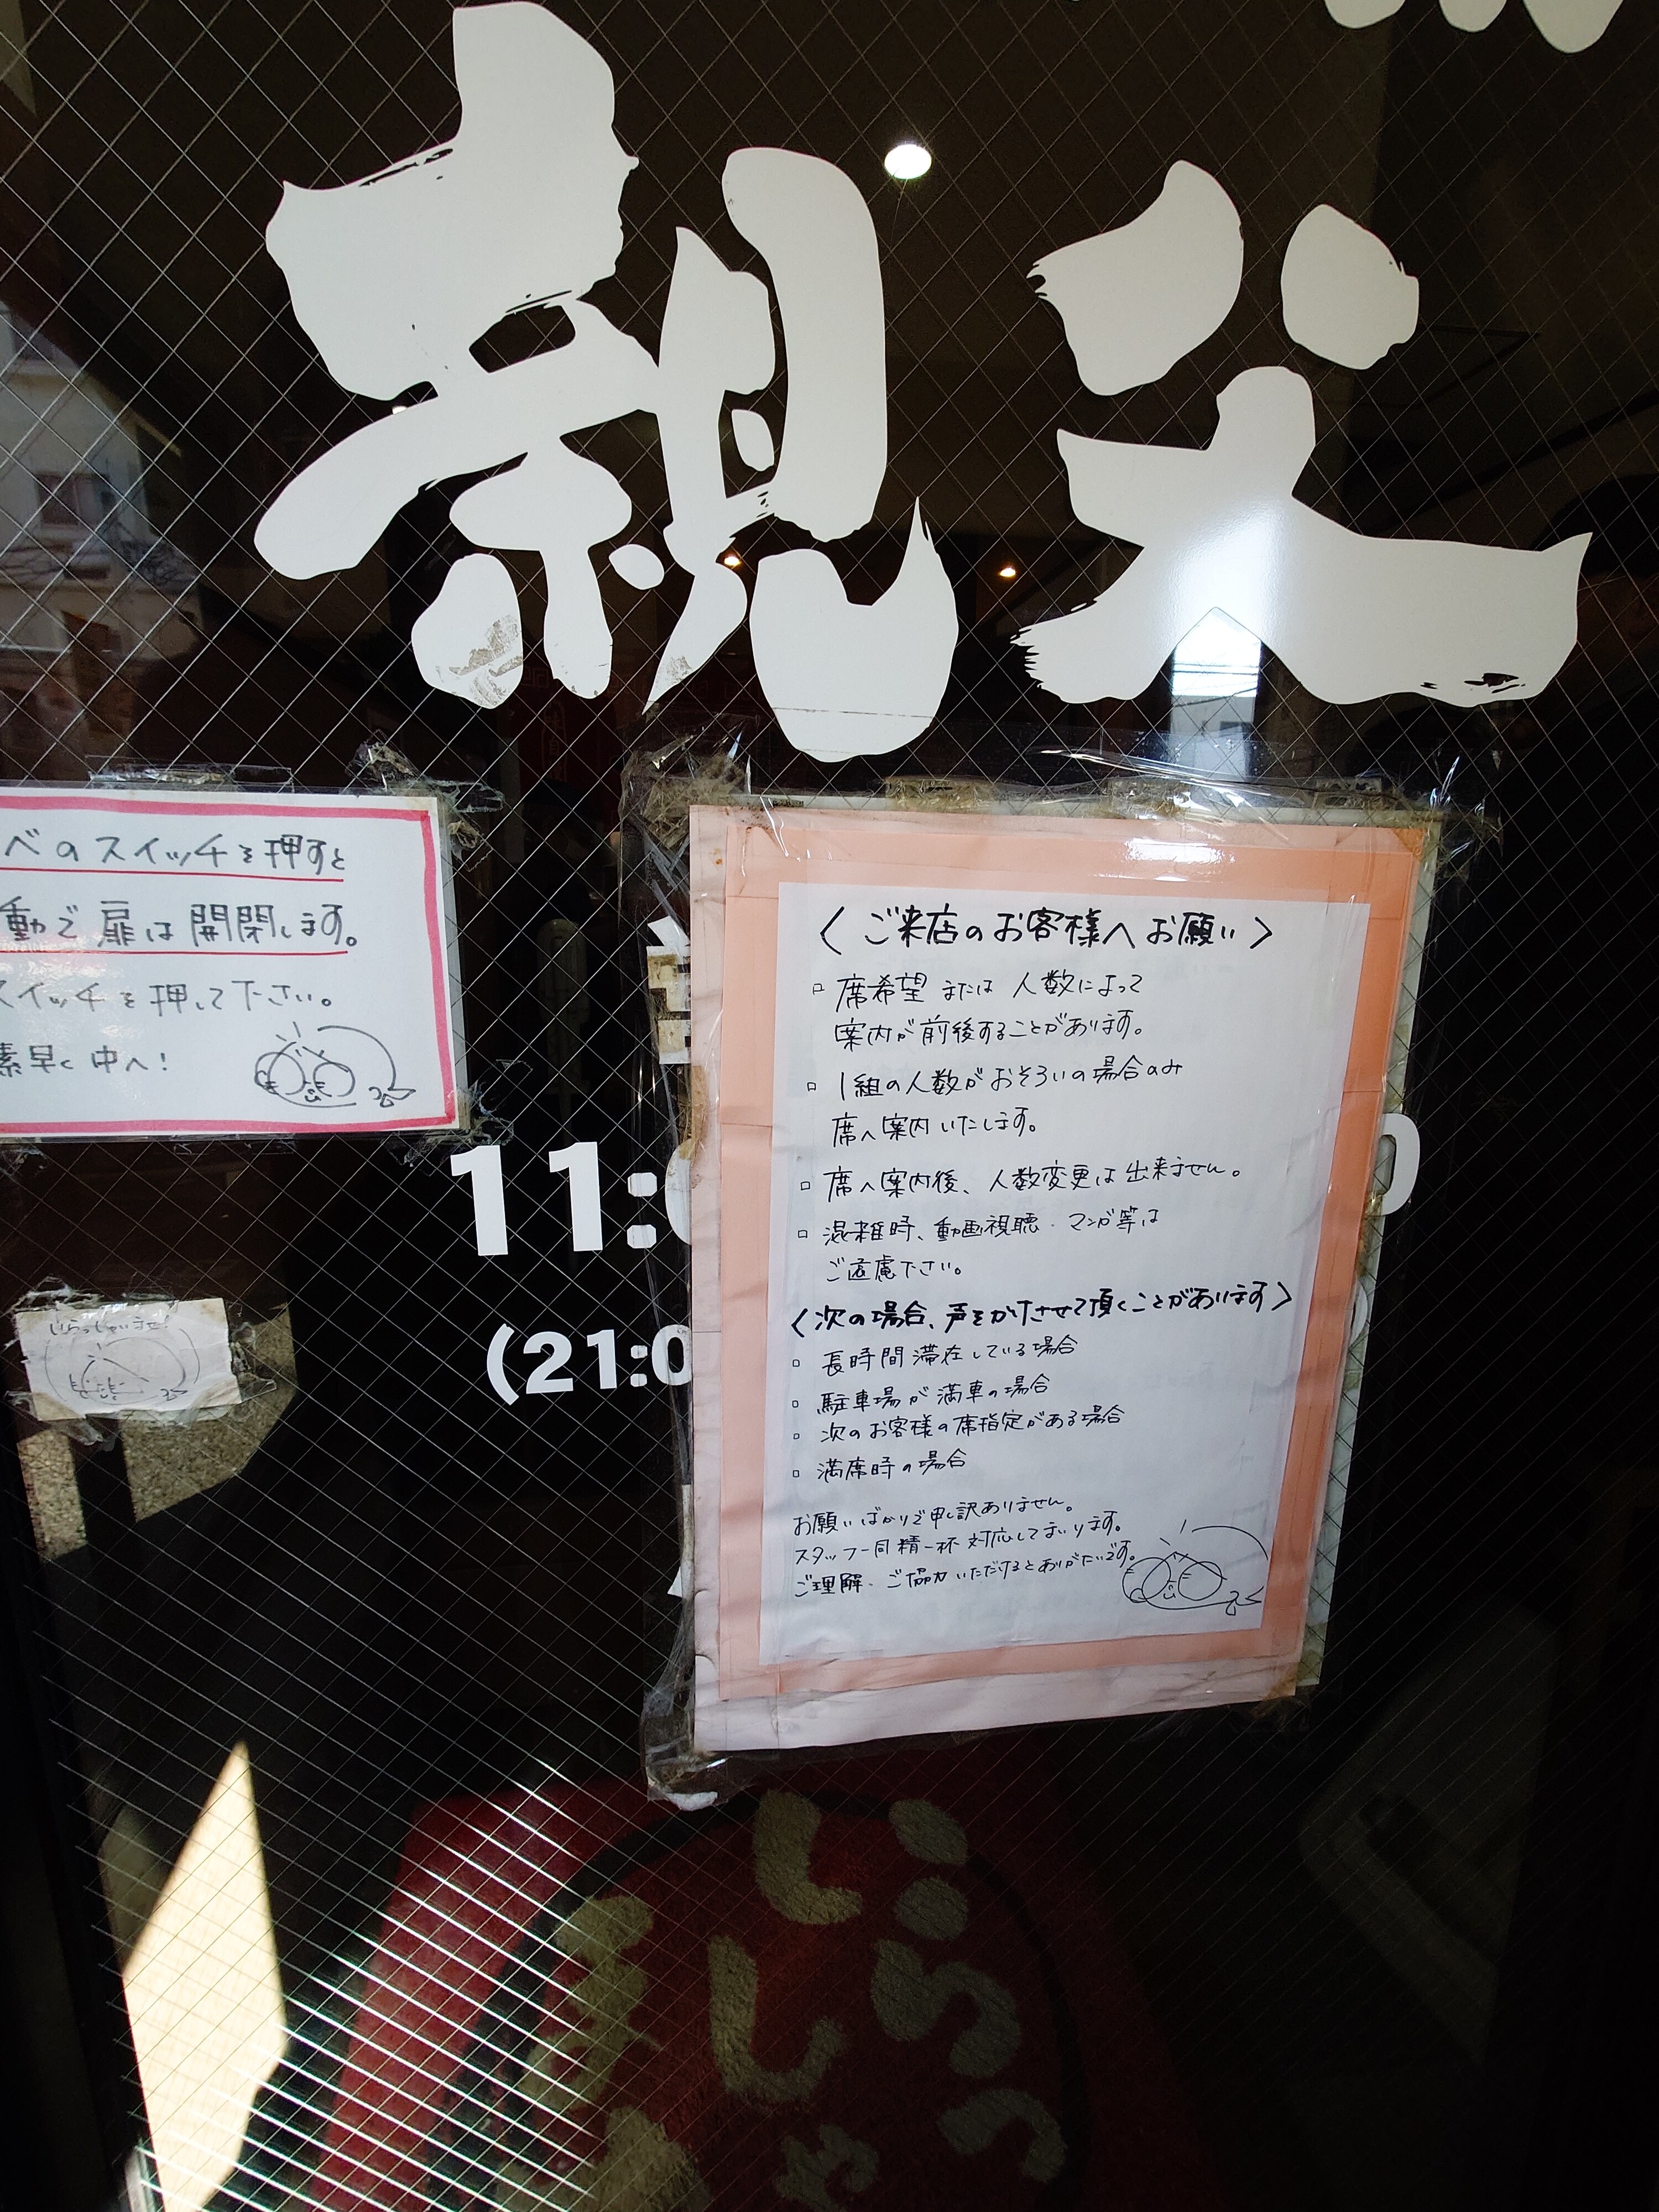 親父
べのスイッチを押すと
動で扉は開閉します。
スイッチを押して下さい。
素早く中へ!
いらっしゃいませ!
11:0
(21:0
<ご来店のお客様へお願い>
▫ 席希望または人数によって
案内が前後することがあります。
▫ 1組の人数がおそろいの場合のみ
席へ案内いたします。
▫ 席へ案内後、人数変更は出来ません。
▫ 混雑時、動画視聴・マンガ等は
ご遠慮下さい。
<次の場合、声をかけさせて頂くことがあります>
▫ 長時間滞在している場合
▫ 駐車場が満車の場合
▫ 次のお客様の席指定がある場合
▫ 満席時の場合
お願いばかりで申し訳ありません。
スタッフ一同精一杯対応してまいります。
ご理解・ご協力いただけるとありがたいです。
いらっしゃ
しま